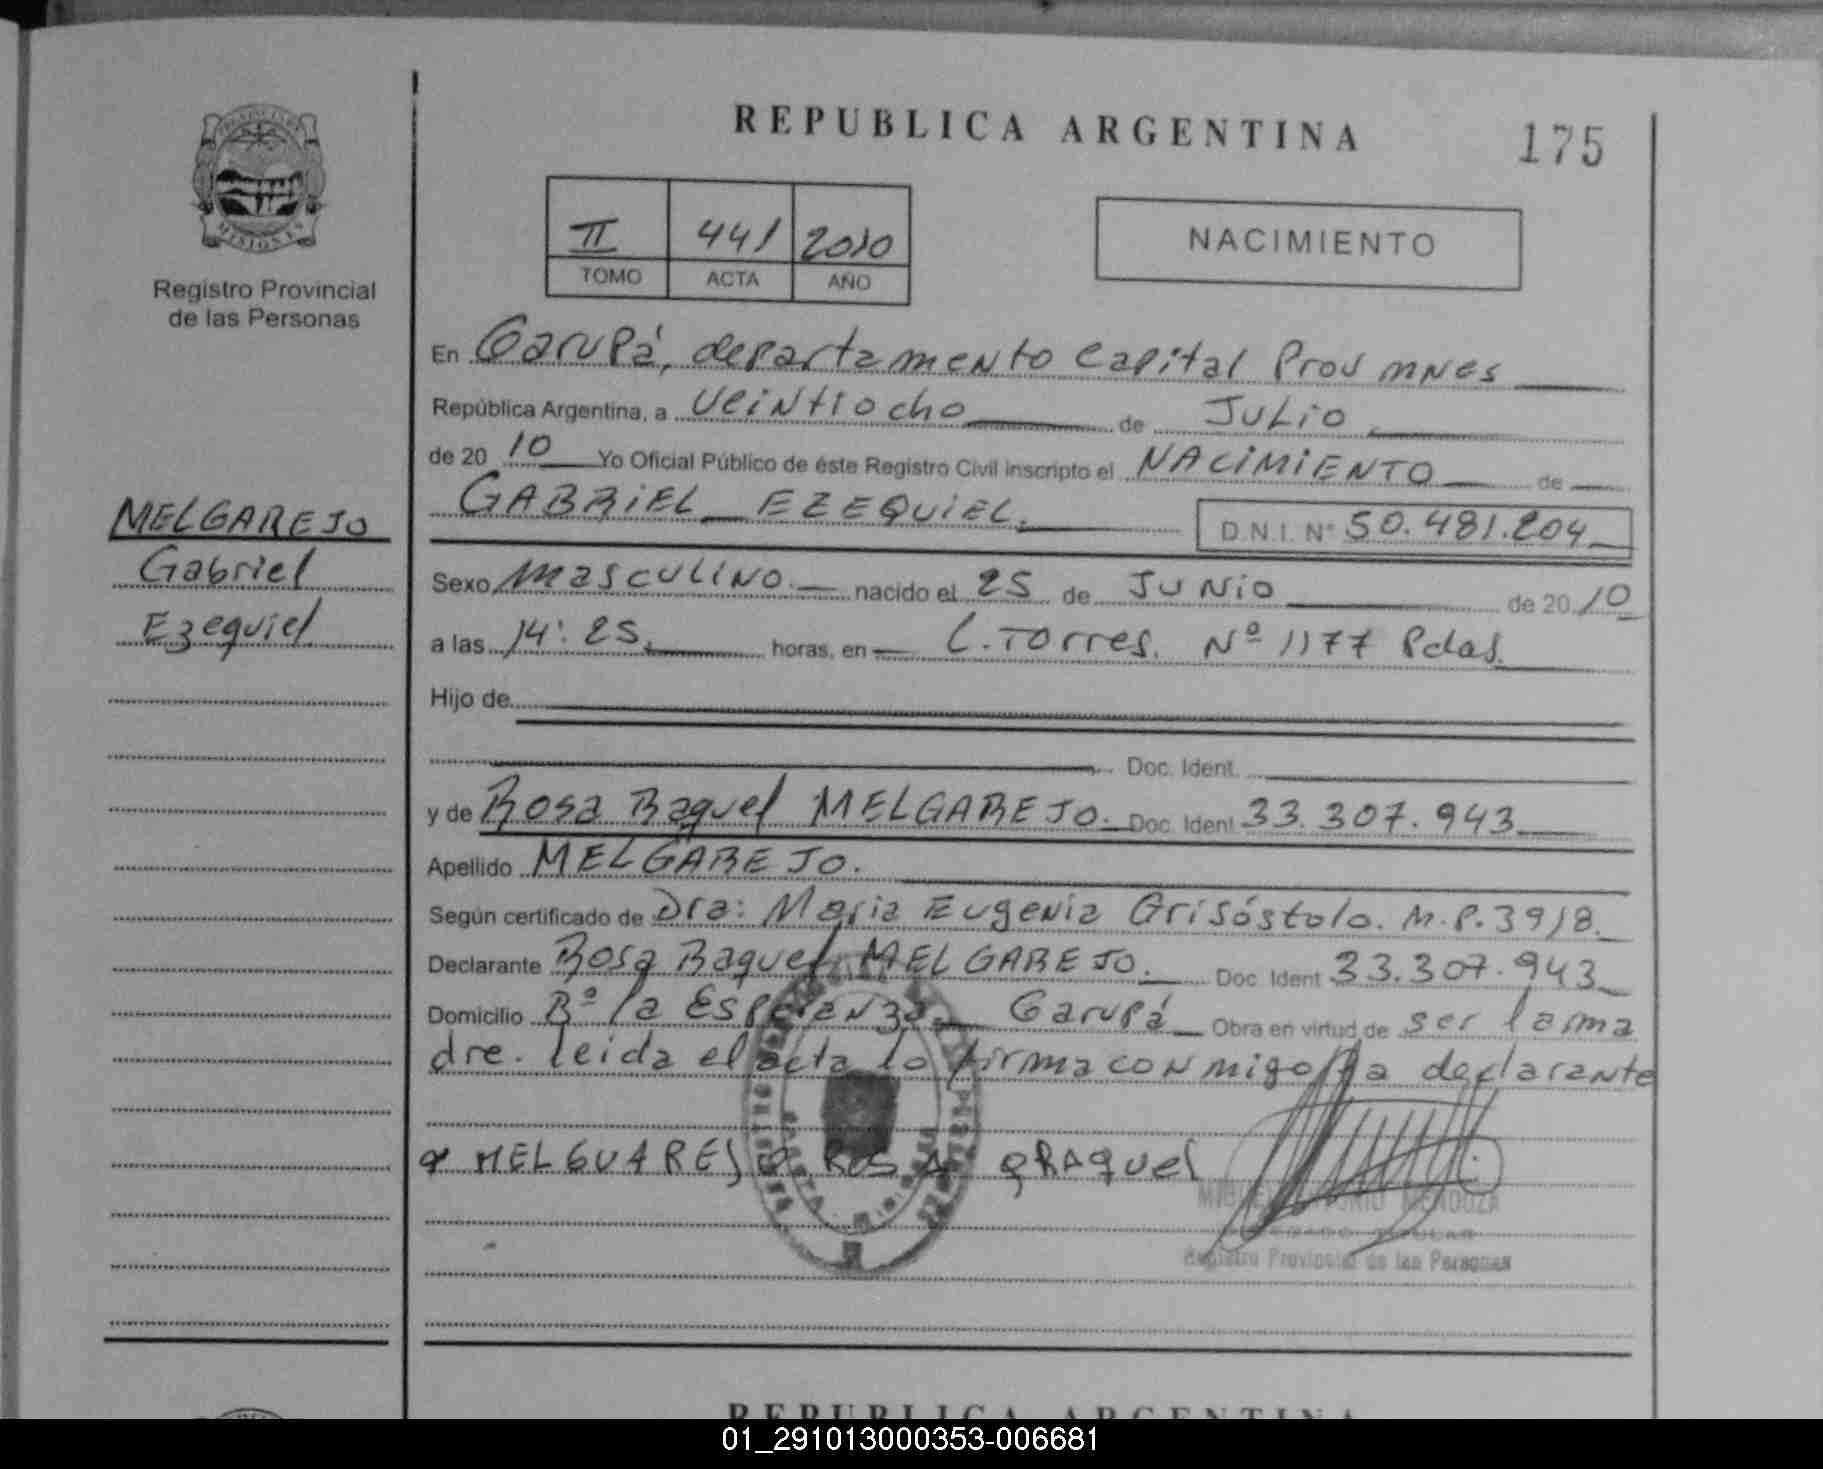 REPUBLICA ARGENTINA
175
PROVINCIA DE
MISIONES
Registro Provincial
de las Personas
II 441 2010
TOMO ACTA AÑO
NACIMIENTO
En Garupá, departamento Capital Prov mnes
República Argentina, a veintiocho de JULIO
de 20 10 Yo Oficial Público de éste Registro Civil inscripto el NACIMIENTO de
GABRIEL EZEQUIEL. D.N.I. N° 50.481.204
MELGAREJO
Gabriel
Ezequiel
Sexo masculino. nacido el 25 de JUNIO de 20 10
a las 14:25. horas, en C. Torres. Nº 1177 Pdas.
Hijo de
Doc. Ident.
y de Rosa Raquel MELGAREJO. Doc. Ident 33.307.943
Apellido MELGAREJO.
Según certificado de Dra: Maria Eugenia Grisóstolo. M.P. 3918.
Declarante Rosa Raquel MELGAREJO. Doc. Ident 33.307.943
Domicilio Bº la Esperanza. Garupá Obra en virtud de ser la ma
dre. leida el acta lo firma conmigo la declarante
MELGUAREJO ROSA RAquel
MIGUEL ANTONIO MENDOZA
Registro Provincial de las Personas
REPUBLICA ARGENTINA
01_291013000353-006681